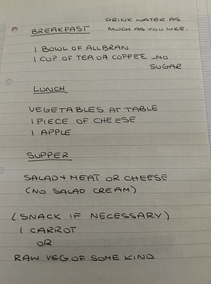 DRINK WATER AS
BREAKFAST MUCH AS YOU LIKE.
1 BOWL OF ALLBRAN
1 CUP OF TEA OR COFFEE - NO
SUGAR
LUNCH
VEGETABLES AT TABLE
1 PIECE OF CHEESE
1 APPLE
SUPPER
SALAD & MEAT OR CHEESE
(NO SALAD CREAM)
(SNACK IF NECESSARY)
1 CARROT
OR
RAW VEG OF SOME KIND